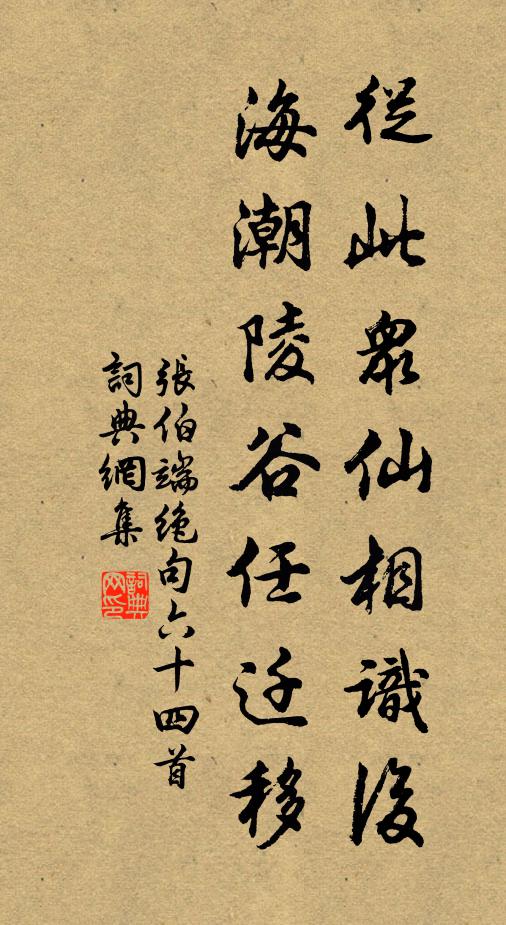 從此眾仙相識後
海潮陵谷任迁移
張伯端绝句六十四首
詞典網集
詞典
网印